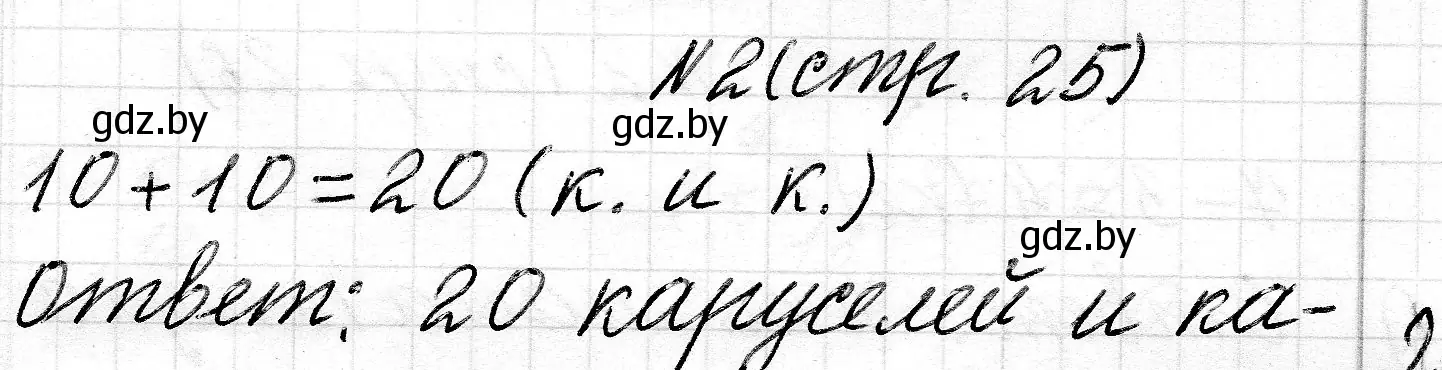 №2(стр. 25)
gdz.by
gdz.by
10+10=20 (к. и к.)
gdz.by
Ответ: 20 каруселей и ка-